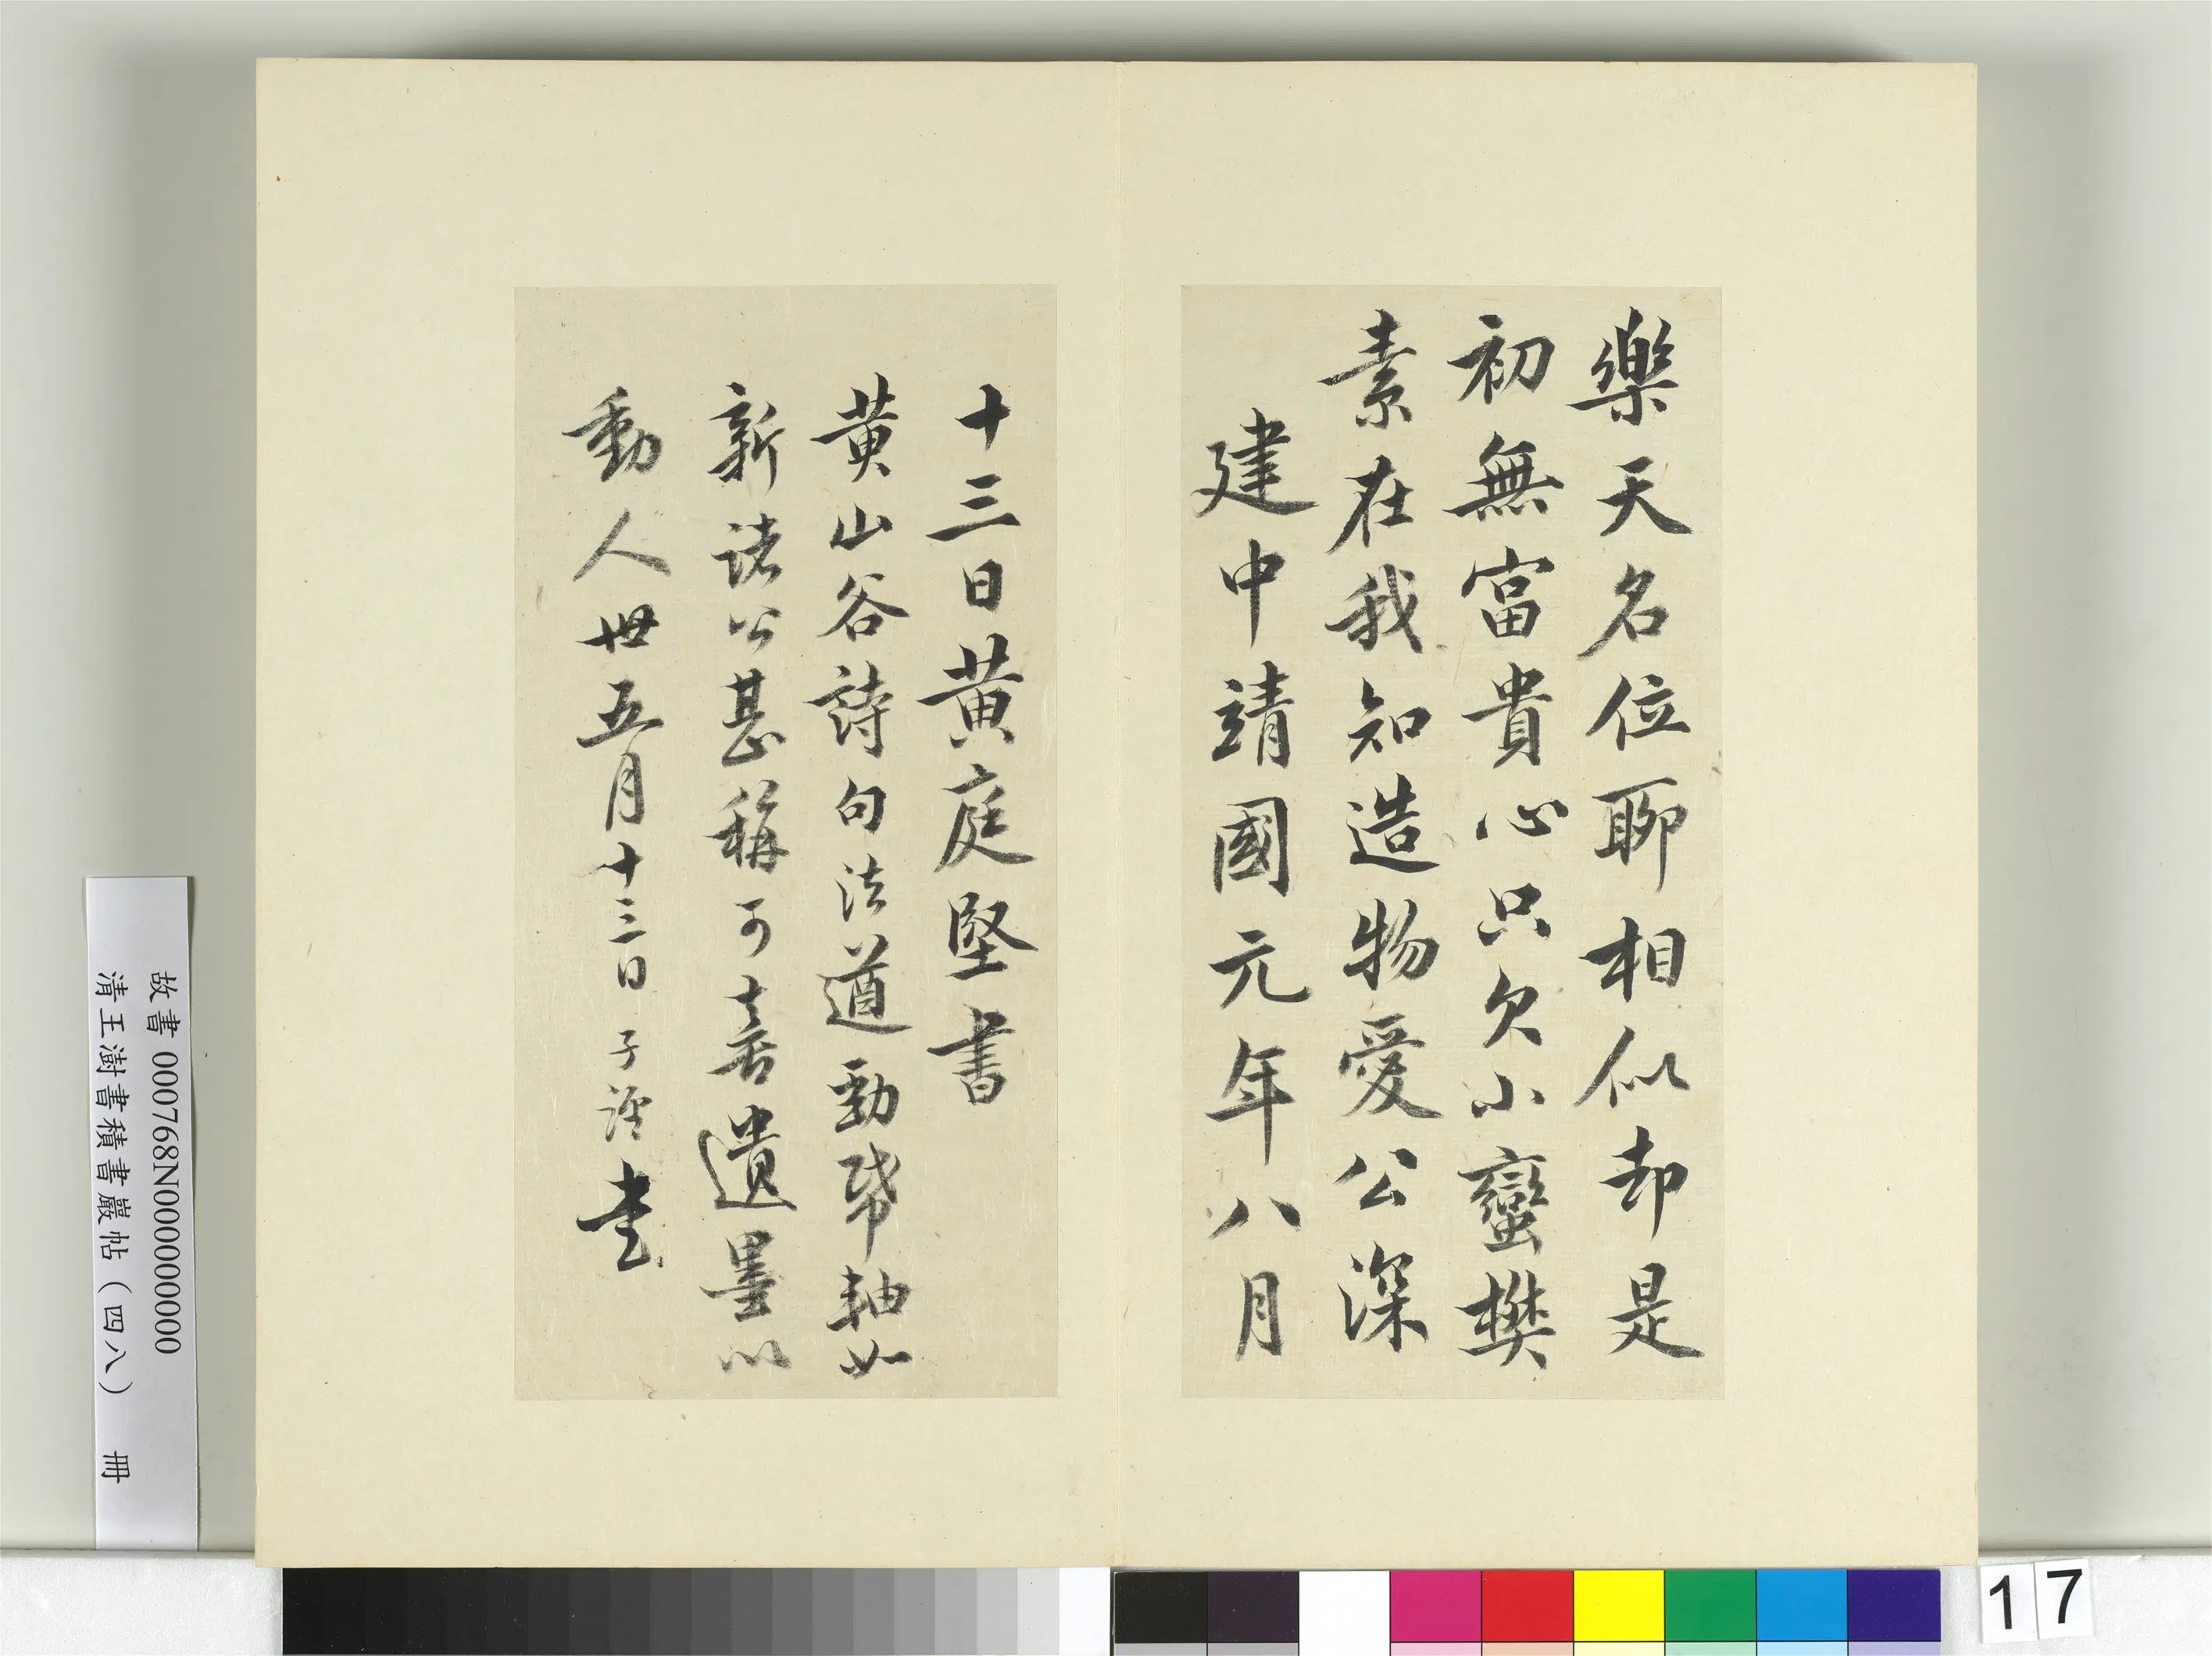 樂天名位聊相似却是
初無富貴心只欠小蠻樊
素在我知造物愛公深
建中靖國元年八月
十三日黃庭堅書
黃山谷詩句法遒勁卷軸如
新諸公甚稱可喜遺墨以
動人世五月十三日子諲書
故書 000768N000000000
清王澍書積書巖帖(四八) 冊
17